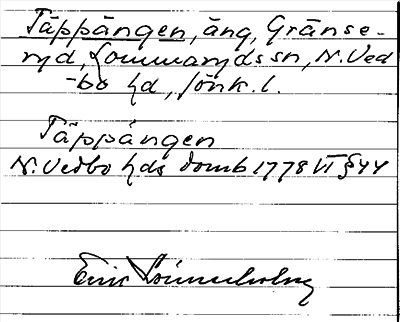 Täppängen, äng, Gränse-
ryd, Lommaryds sn, N. Ved
-bo hd, Jönk. l.
Täppängen
N. Vedbo hds domb 1778 VI § 44
Eric